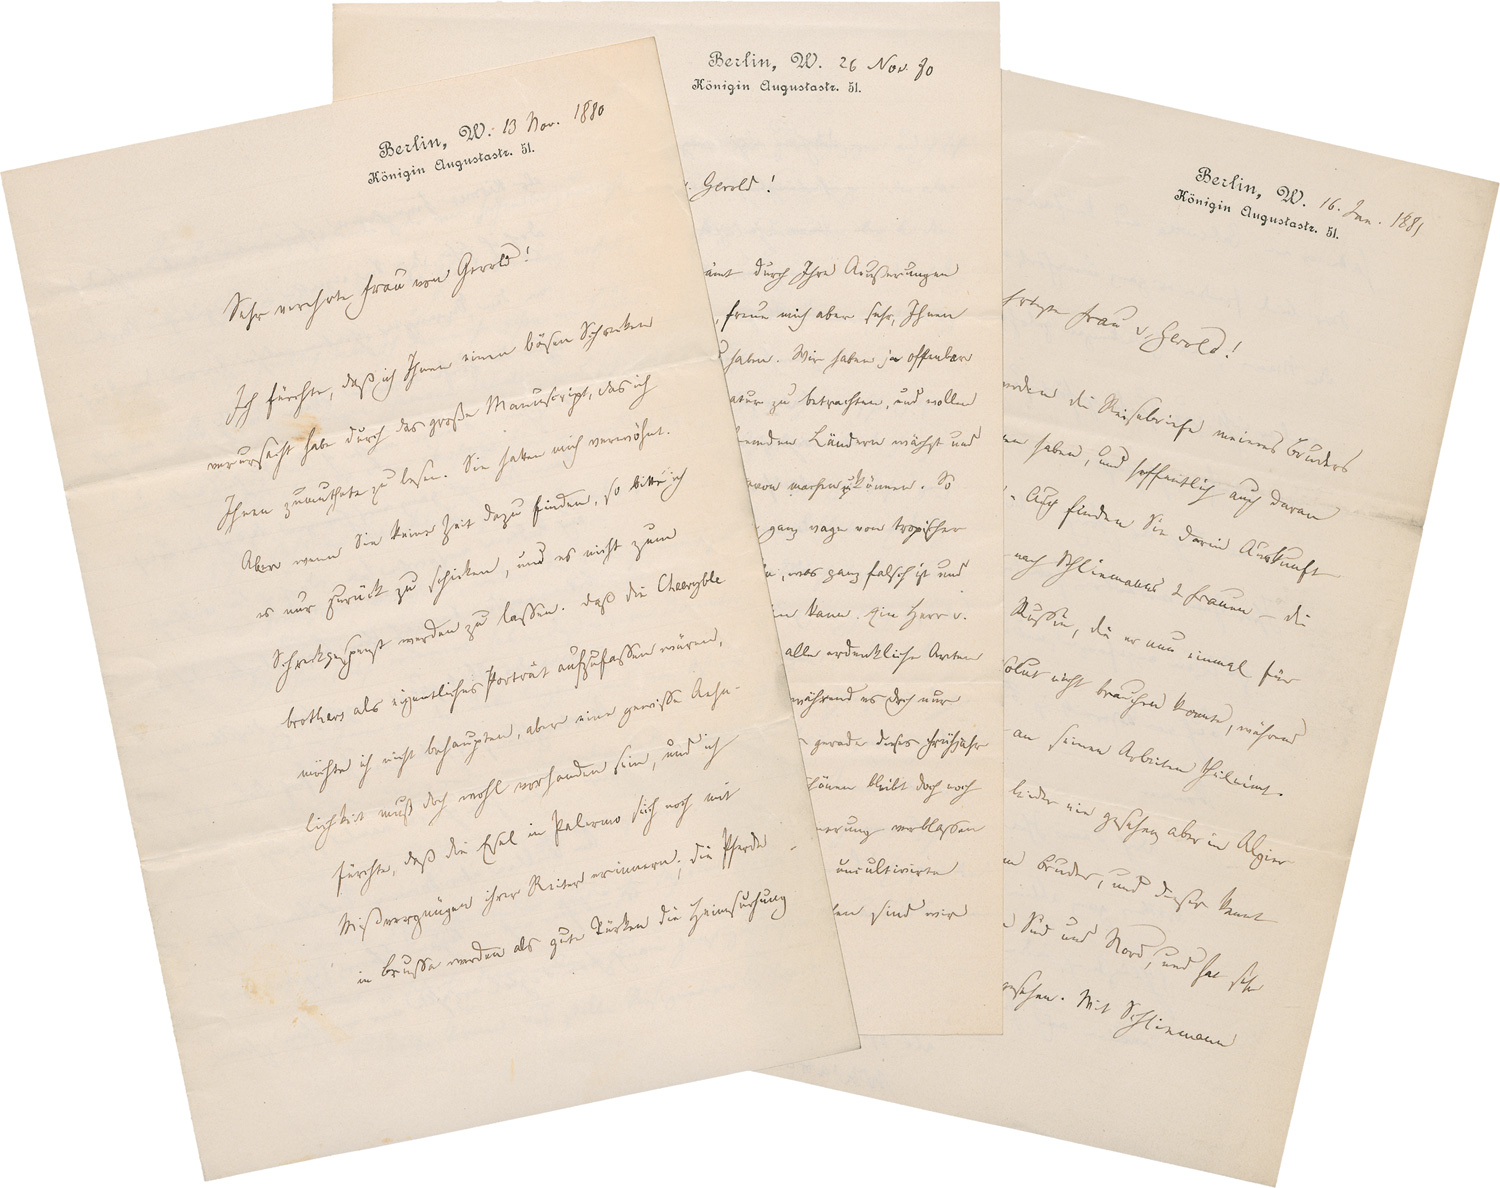 Berlin, W. 13 Nov. 1880
Königin Augustastr. 51.
Sehr verehrte Frau von Gerold!
Ich fürchte, daß ich Ihnen einen bösen Schrecken
verursacht habe durch das große Manuscript, das ich
Ihnen zumuthete zu lesen. Sie hatten mich verwöhnt.
Aber wenn Sie keine Zeit dazu finden, so bitte ich
es nur zurück zu schicken, und es nicht zum
Schreckgespenst werden zu lassen. Daß die Cheeryble
brothers als eigentliches Porträt aufzufassen wären,
möchte ich nicht behaupten, aber eine gewisse Aehn-
lichkeit muß doch wohl vorhanden sein, und ich
fürchte, daß die Esel in Palermo sich noch mit
Mißvergnügen ihrer Reiter erinnern; die Pferde
in Brussa werden als gute Türken die Heimsuchung
Berlin, W. 26 Nov. 80
Königin Augustastr. 51.
v. Gerold!
durch Ihre Äußerungen
, freue mich aber sehr, Ihnen
haben. Wir haben ja offenbar
zu betrachten, und wollen
fremden Ländern wächst und
davon machen zu können. So
ganz vage von tropischer
, was ganz falsch ist und
kann. Ein Herr v.
alle erdenkliche Arten
während es doch nur
gerade dieses Frühjahr
Schönen bleibt doch noch
verblassen
uncultivirte
sind wir
Berlin, W. 16. Jan. 1881
Königin Augustastr. 51.
Frau v. Gerold!
werden die Reisebriefe meines Bruders
haben, und hoffentlich auch daran
. Auch finden Sie darin Auskunft
nach Schliemanns 2 Frauen – die
Russin, die er nun einmal für
absolut nicht brauchen konnte, während
an seinen Arbeiten theilnimt.
leider nie gesehen aber in Algier
Bruder, und dieser kennt
Süd und Nord, und hat sehr
gesehen. Mit Schliemann